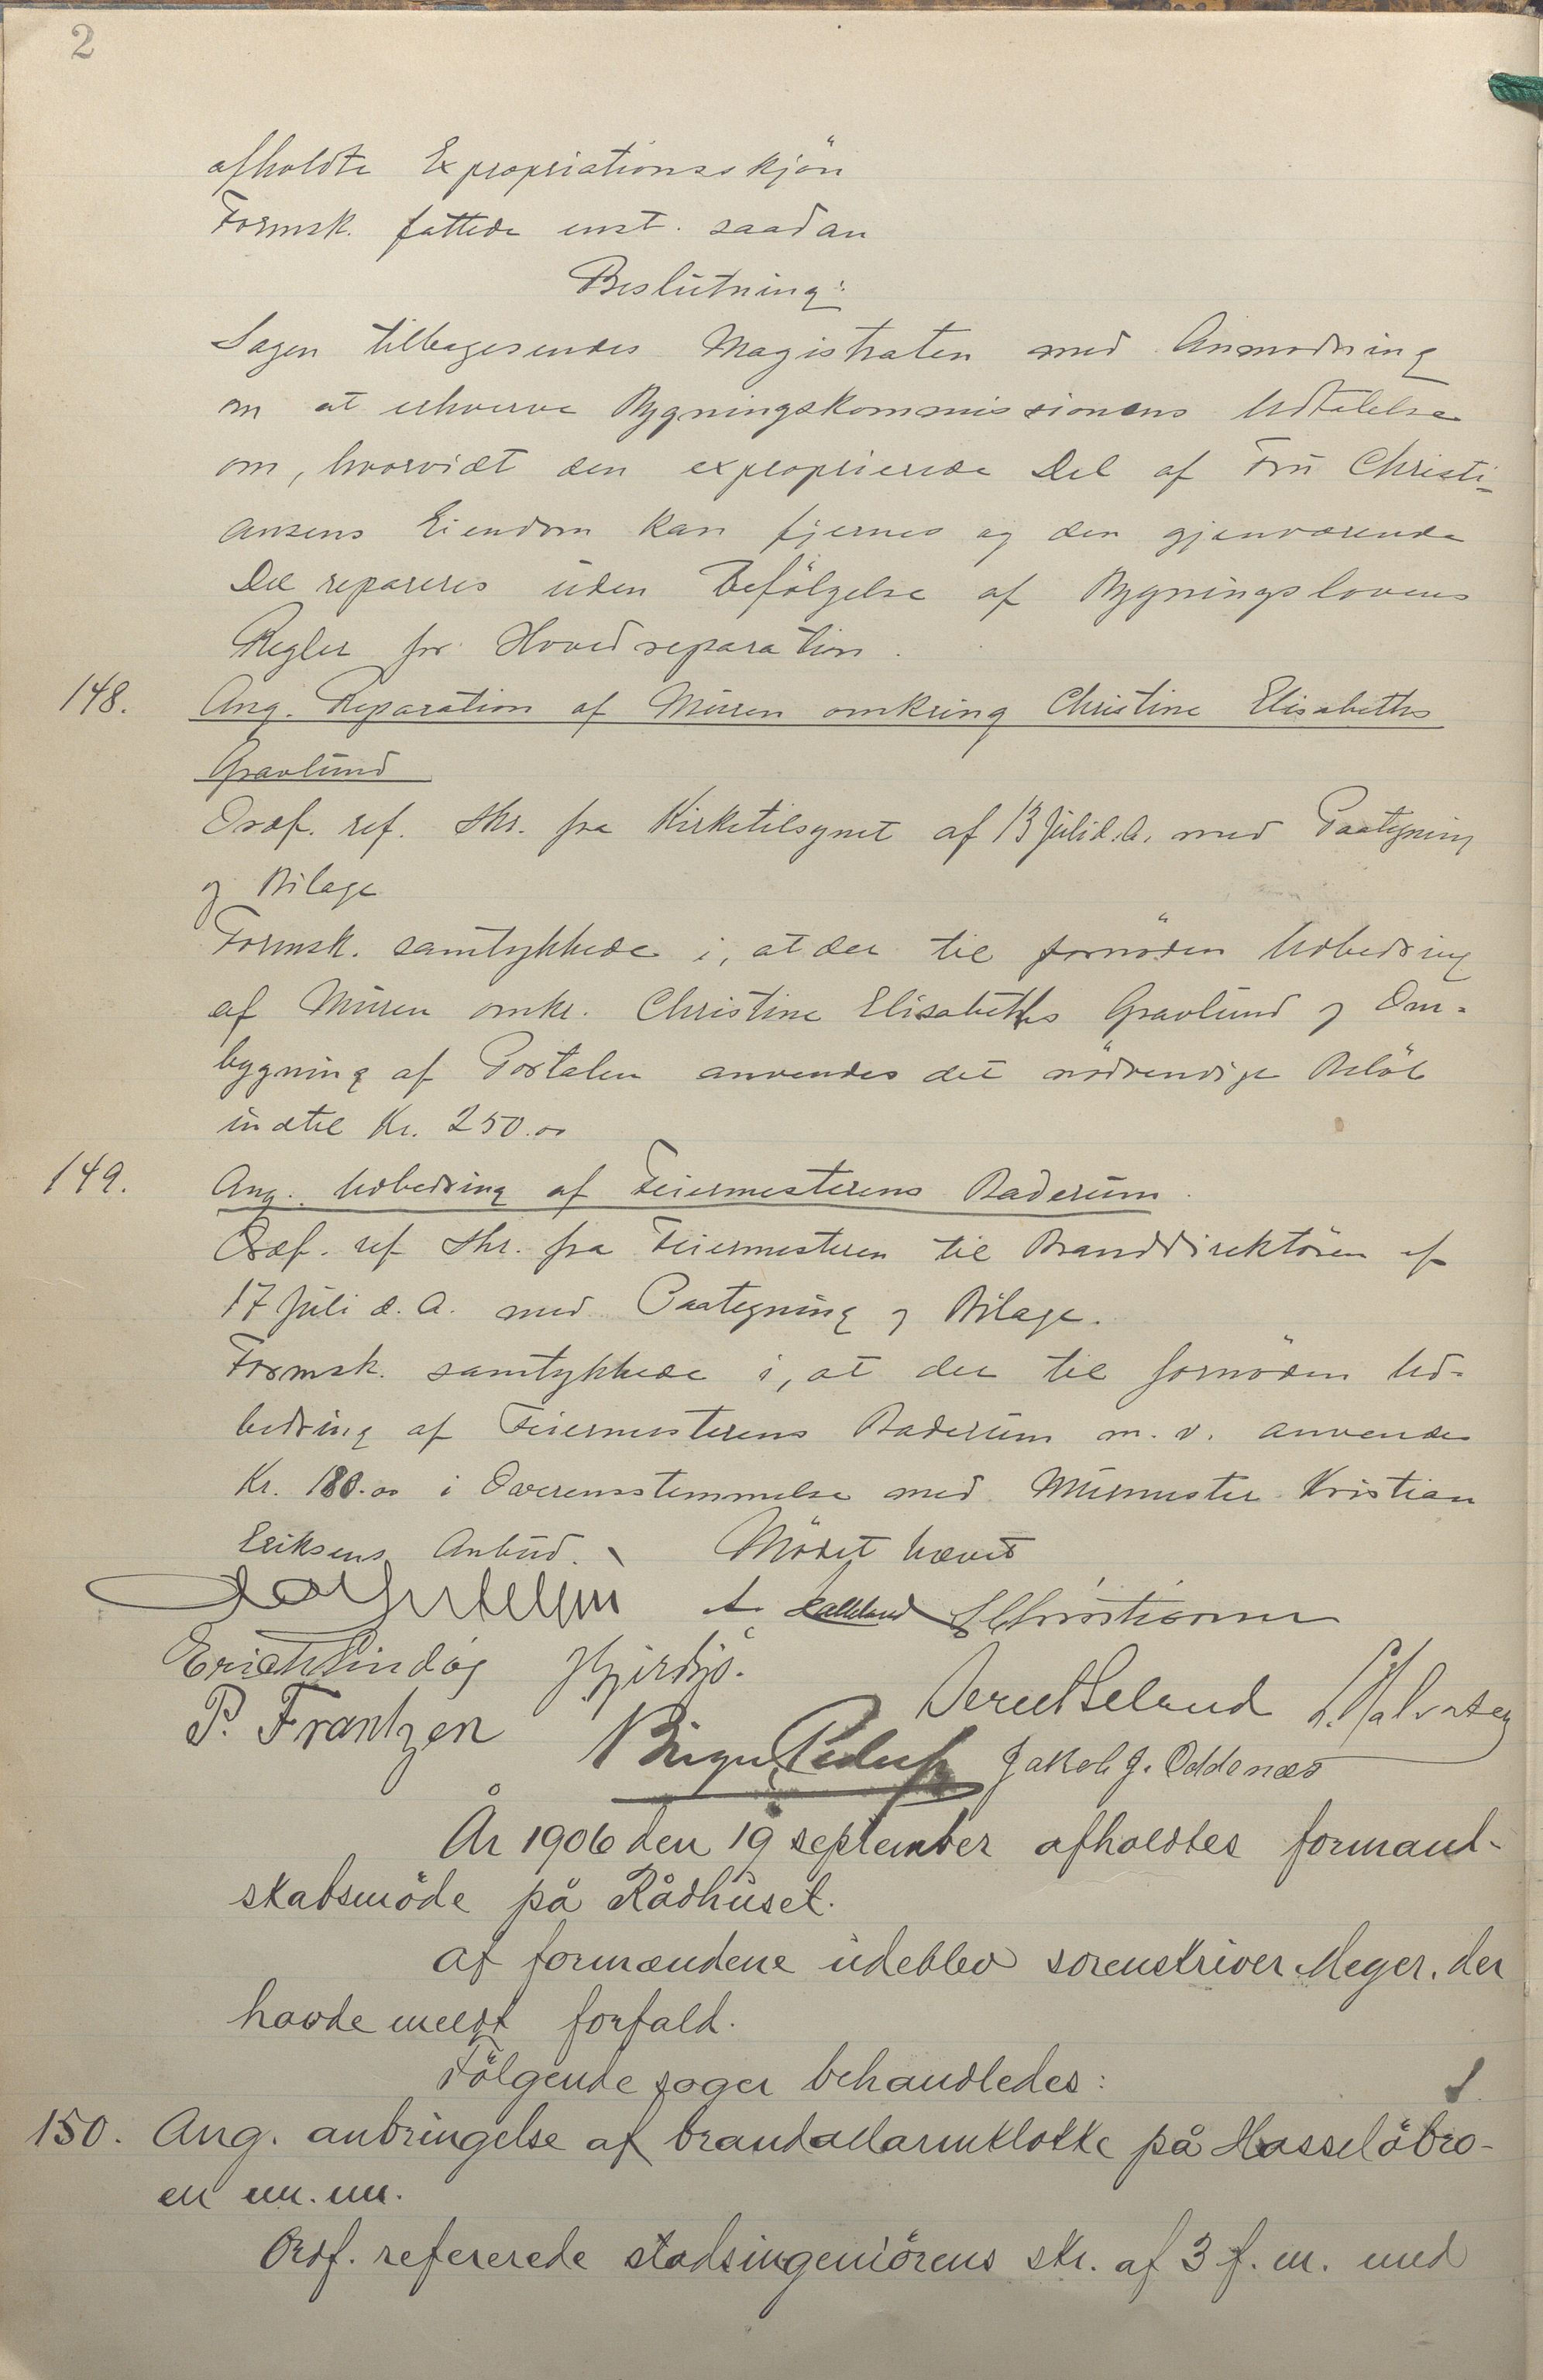 2
afholdte Expropriationsskjön
Formsk. fattede enst. saadan
Beslutning:
Sagen tilbagesendes Magistraten med Anmodning
om at erhverve Bygningskommissionens Udtalelse
om, hvorvidt den exproprierede Del af Fru Christi-
ansens Eiendom kan fjernes og den gjenværende
Del repareres uden Befölgelse af Bygningslovens
Regler for Hovedreparation.
148. Ang. Reparation af Muren omkring Christine Elisabeths
Gravlund
Ordf. ref. Skr. fra Kirketilsynet af 13 Juli d.A. med Paategning
og Bilage
Formsk. samtykkede i, at der til fornöden Udbedring
af Muren omkr. Christine Elisabeths Gravlund og Om-
bygning af Portalen anvendes det nödvendige Belöb
indtil Kr. 250.00
149. Ang. Udbedring af Feiermesterens Baderum.
Ordf. ref Skr. fra Feiermesteren til Branddirektören af
17 Juli d. A. med Paategning og Bilage.
Formsk. samtykkede i, at der til fornöden Ud-
bedring af Feiermesterens Baderum m. v. anvendes
Kr. 180.00 i Overensstemmelse med Murmester Kristian
Eriksens Anbud. Mödet hævet
A. Kalleland Christiansen
Erich Lindög
P. Frantzen Berent Seland Halvorsen
Birger Peders Jakob J. Oddenæs
År 1906 den 19 september afholdtes formand-
skabsmöde på Rådhuset.
Af formændene udeblev sorenskriver Meyer, der
havde meldt forfald.
Fölgende sager behandledes:
150. Ang. anbringelse af brandallarmklokke på Hasselöbro-
en m.m.
Ordf. refererede stadsingeniörens skr. af 3 f. m. med